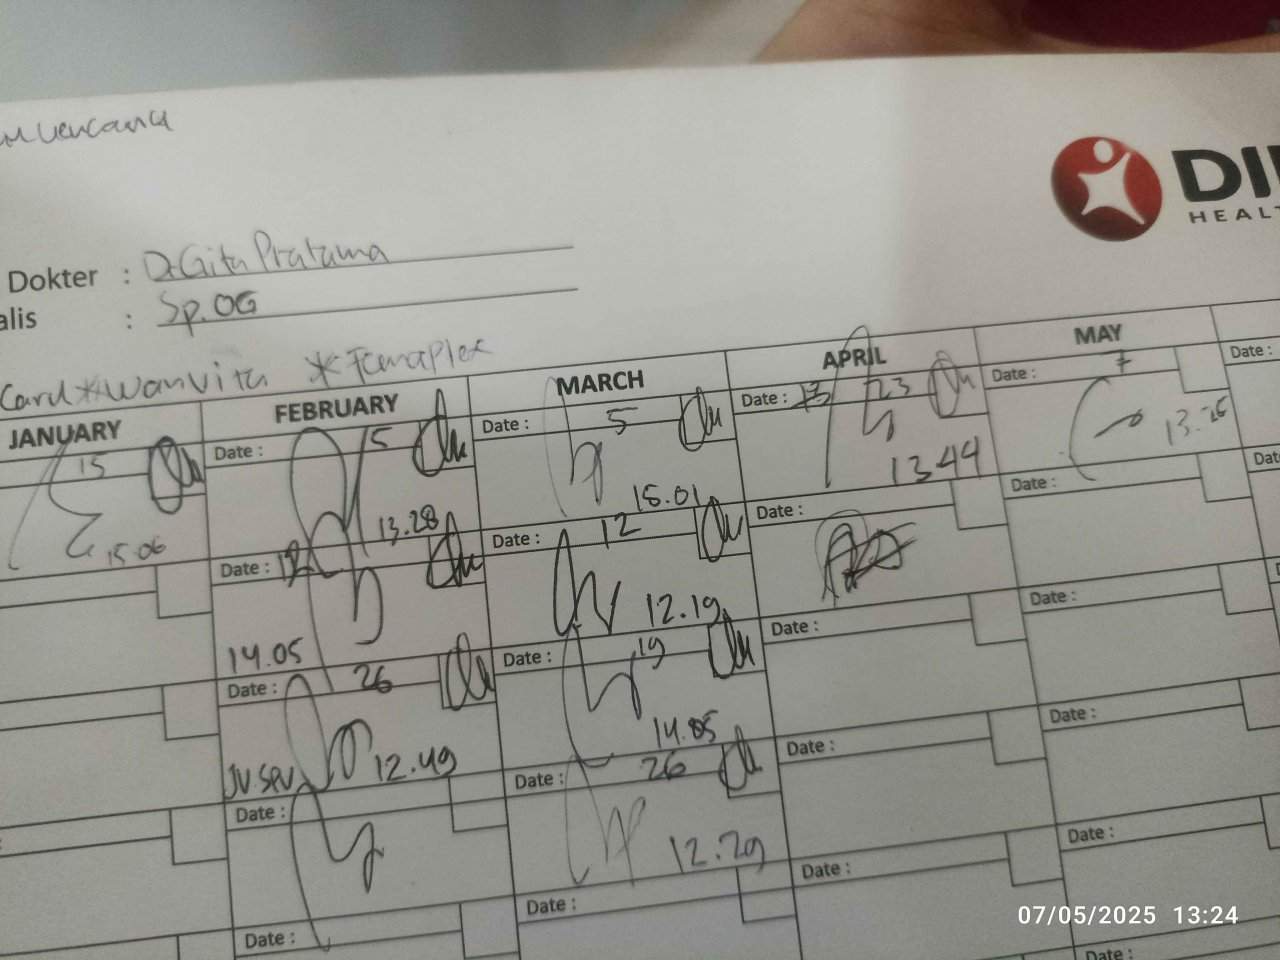 DI
HEALT
Dokter : Dr Gita Pratama
alis : Sp.OG
Card * Wanvita * Femaplex
JANUARY FEBRUARY MARCH APRIL MAY
15 Date : 5 Date : 5 Date : 23 Date : 7 Date :
15.06 13.28 15.01 13.44 13.26
Date : 12 Date : 12 Date : Date : Dat
14.05 12.19
Date : 26 Date : 19 Date : Date : D
JV.SPV 12.49 14.05
Date : Date : 26 Date : Date :
12.29
Date : Date : Date : Date :
Date :
07/05/2025 13:24